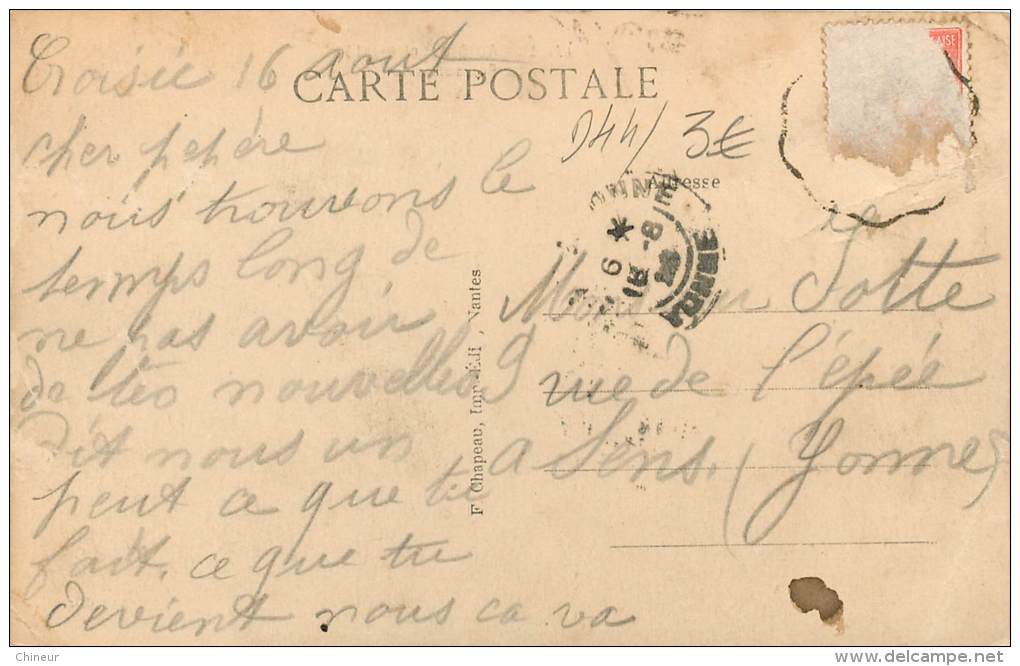 Croisic 16 aout
CARTE POSTALE
D44/ 3€
Adresse
cher pepère
nous trouvons le
temps long de
ne pas avoir
de tes nouvelles
Dit nous un
peut ce que tu
fait, ce que tu
devient nous ca va
F Chapeau, Imp.-Edi , Nantes
Monsieur Sotte
9 rue de l'épée
a Sens. (Yonne)
YONNE
AISE
Chineur
www.delcampe.net